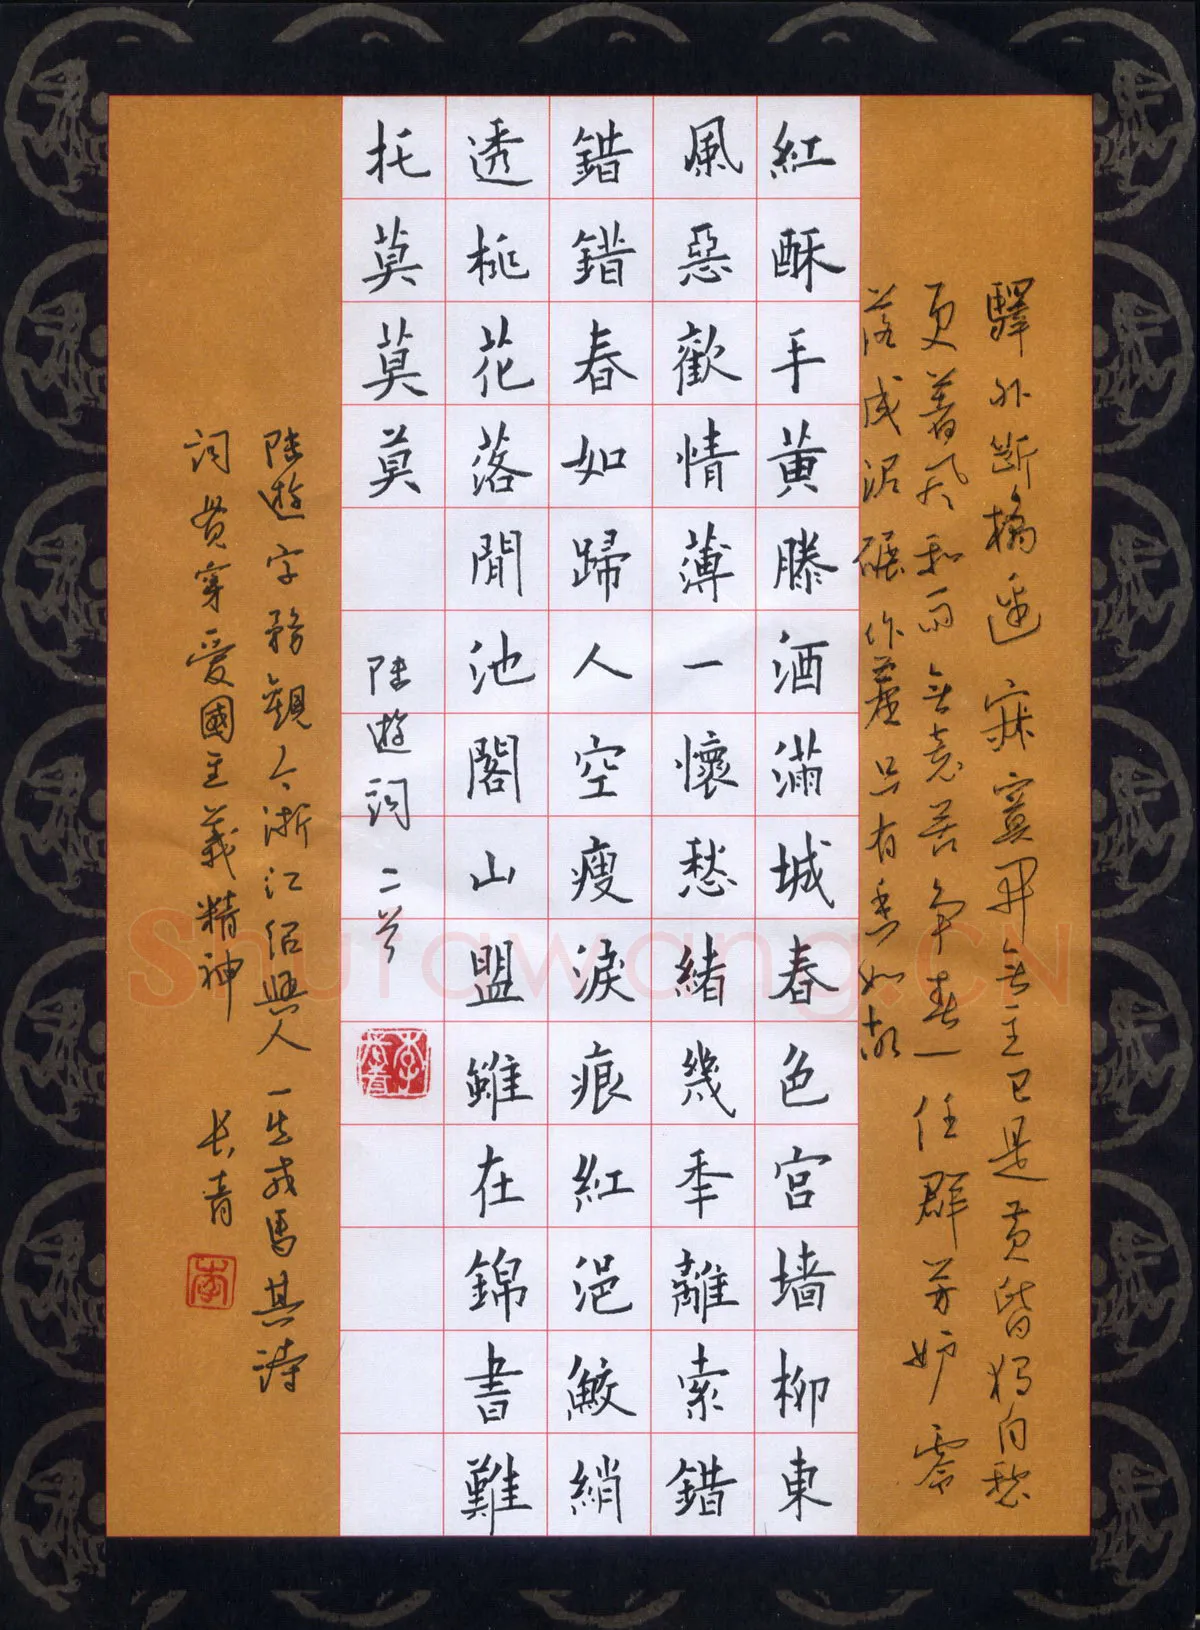 驛外斷橋邊寂寞開無主已是黃昏獨自愁
更著風和雨無意苦爭春一任群芳妒零
落成泥碾作塵只有香如故
紅酥手黃滕酒滿城春色宮墻柳東
風惡歡情薄一懷愁緒幾秊離索錯
錯錯春如歸人空瘦淚痕紅浥鮫綃
透桃花落閒池閣山盟雖在錦書難
托莫莫莫 陸遊詞二首
陸遊字務觀今浙江紹興人一生戎馬其詩
詞貫穿愛國主義精神 長青
李
Shufawang.CN